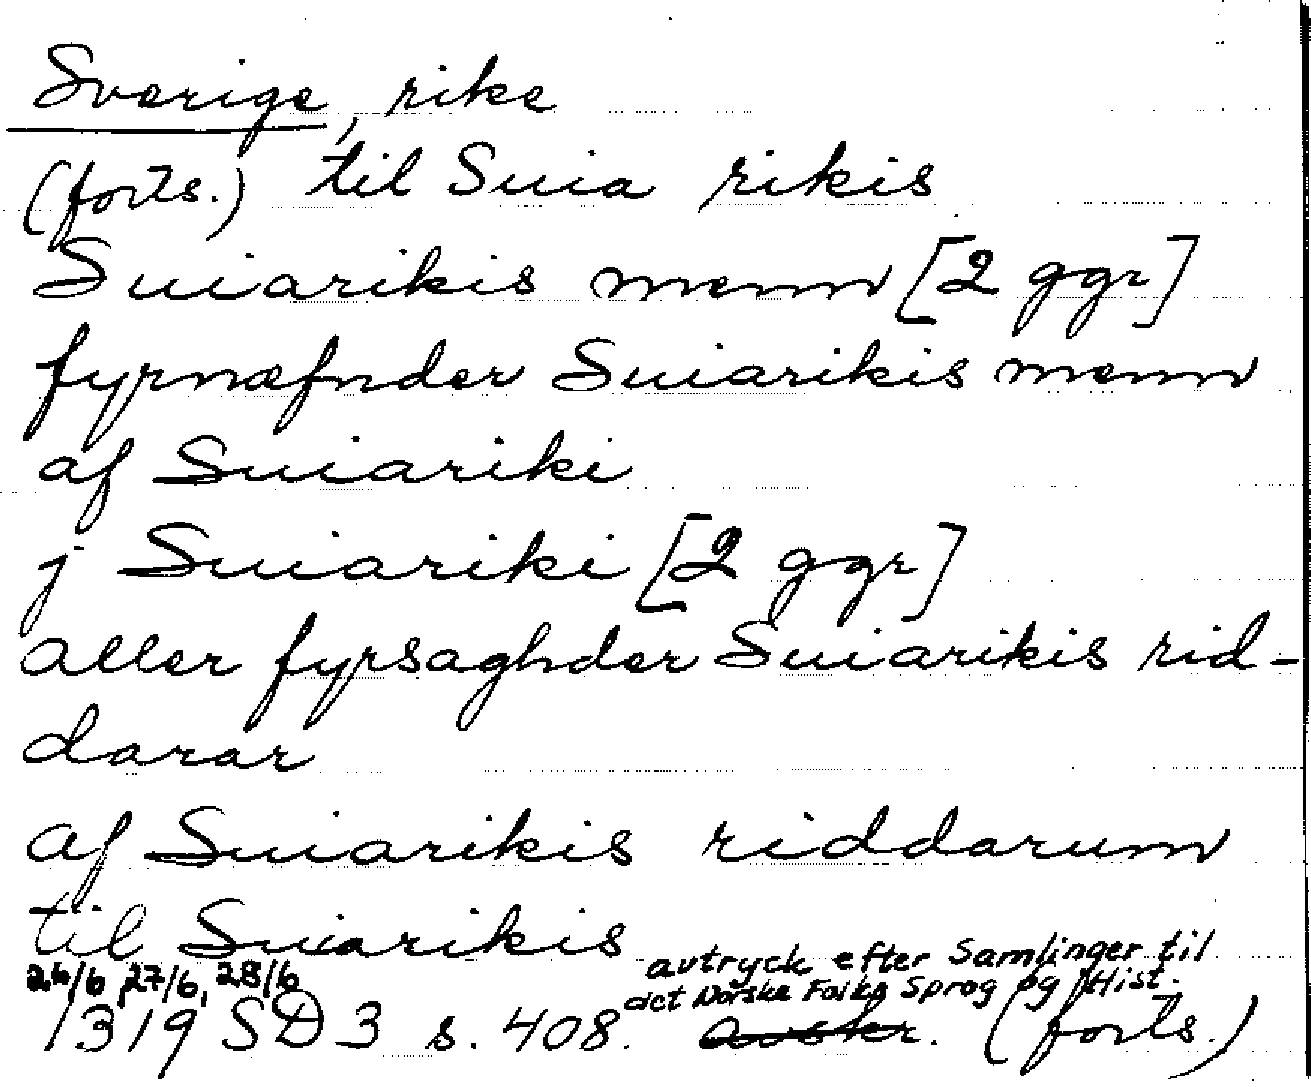 Sverige, rike
(forts.) til Suia rikis
Suiarikis menn [2 ggr]
fyrnæfnder Suiarikis menn
af Suiariki
j Suiariki [2 ggr]
aller fyrsaghder Suiarikis rid-
darar
af Suiarikis riddarum
til Suiarikis
26/6, 27/6, 28/6 avtryck efter Samlinger til
det Norske Folks Sprog og Hist.
1319 SD 3 s. 408. avskr. (forts.)